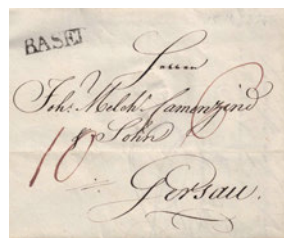 BASEL
Herren
Joh: Melch: Camenzind
& Sohn
10
Gersau.